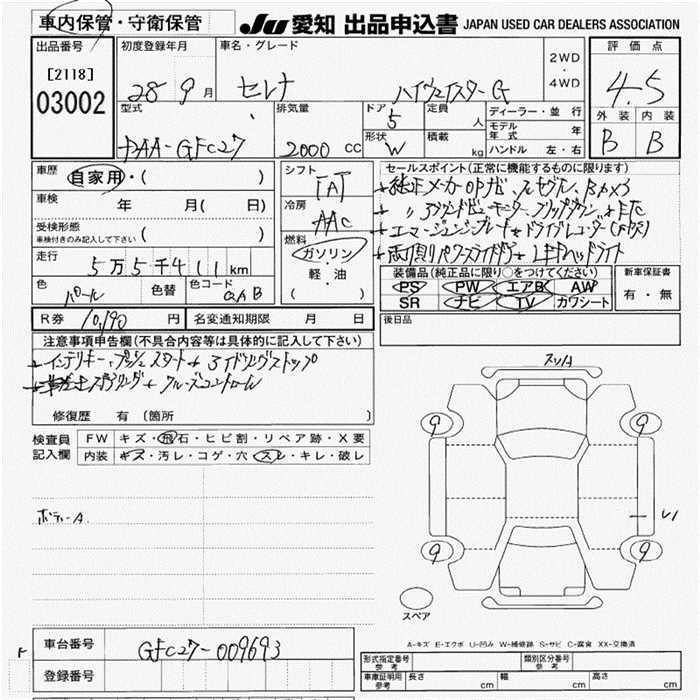 車内保管・守衛保管
JU 愛知 出品申込書 JAPAN USED CAR DEALERS ASSOCIATION
出品番号
[2118]
03002
初度登録年月
28 9 月
車名・グレード
セレナ ハイウェイスターG
2WD
・
4WD
評価点
4.5
外装 内装
B B
型式
DAA-GFC27
排気量
2000 CC
ドア
5
形状
W
定員
人
積載
kg
ディーラー・並行
モデル年式 年
ハンドル 左・右
車歴
自家用・( )
車検
年 月( 日)
受検形態
車検付きのみ記入して下さい ( )
走行
5万5千411km
色
パール
色替
色コード
QAB
シフト
IAT
冷房
AAC
燃料
ガソリン・
軽・油
( )
セールスポイント(正常に機能するものに限ります)
+純正メーカOPナビ、フルセグTV、Bカメラ
+ 〃 アラウンドビューモニター フリップダウン + ETC
+エマージェンシーブレーキ+ドライブレコーダー
+両側パワースライドドア + LEDヘッドライト
装備品(純正品に限り○をつけてください)
PS PW エアB AW
SR ナビ TV カワシート
新車保証書
有・無
R券 10,190 円
名変通知期限 月 日
後日品
注意事項申告欄(不具合内容等は具体的に記入して下さい)
+インテリキー、プッシュスタート+アイドリングストップ
+クルーズコントロール
修復歴 有(箇所 )
検査員
記入欄
FW キズ・飛石・ヒビ割・リペア跡・X要
内装 キズ・汚レ・コゲ・穴・スレ・キレ・破レ
ボディーA.
スリA
9 9
U1
9 9
スペア
A-キズ E-エクボ U-凹み W-補修跡 S-サビ C-腐食 XX-交換済
F
車台番号
GFC27-009693
登録番号
形式指定番号
参考
類別区分番号
参考
車庫証明用
参考
長さ cm 幅 cm 高さ cm